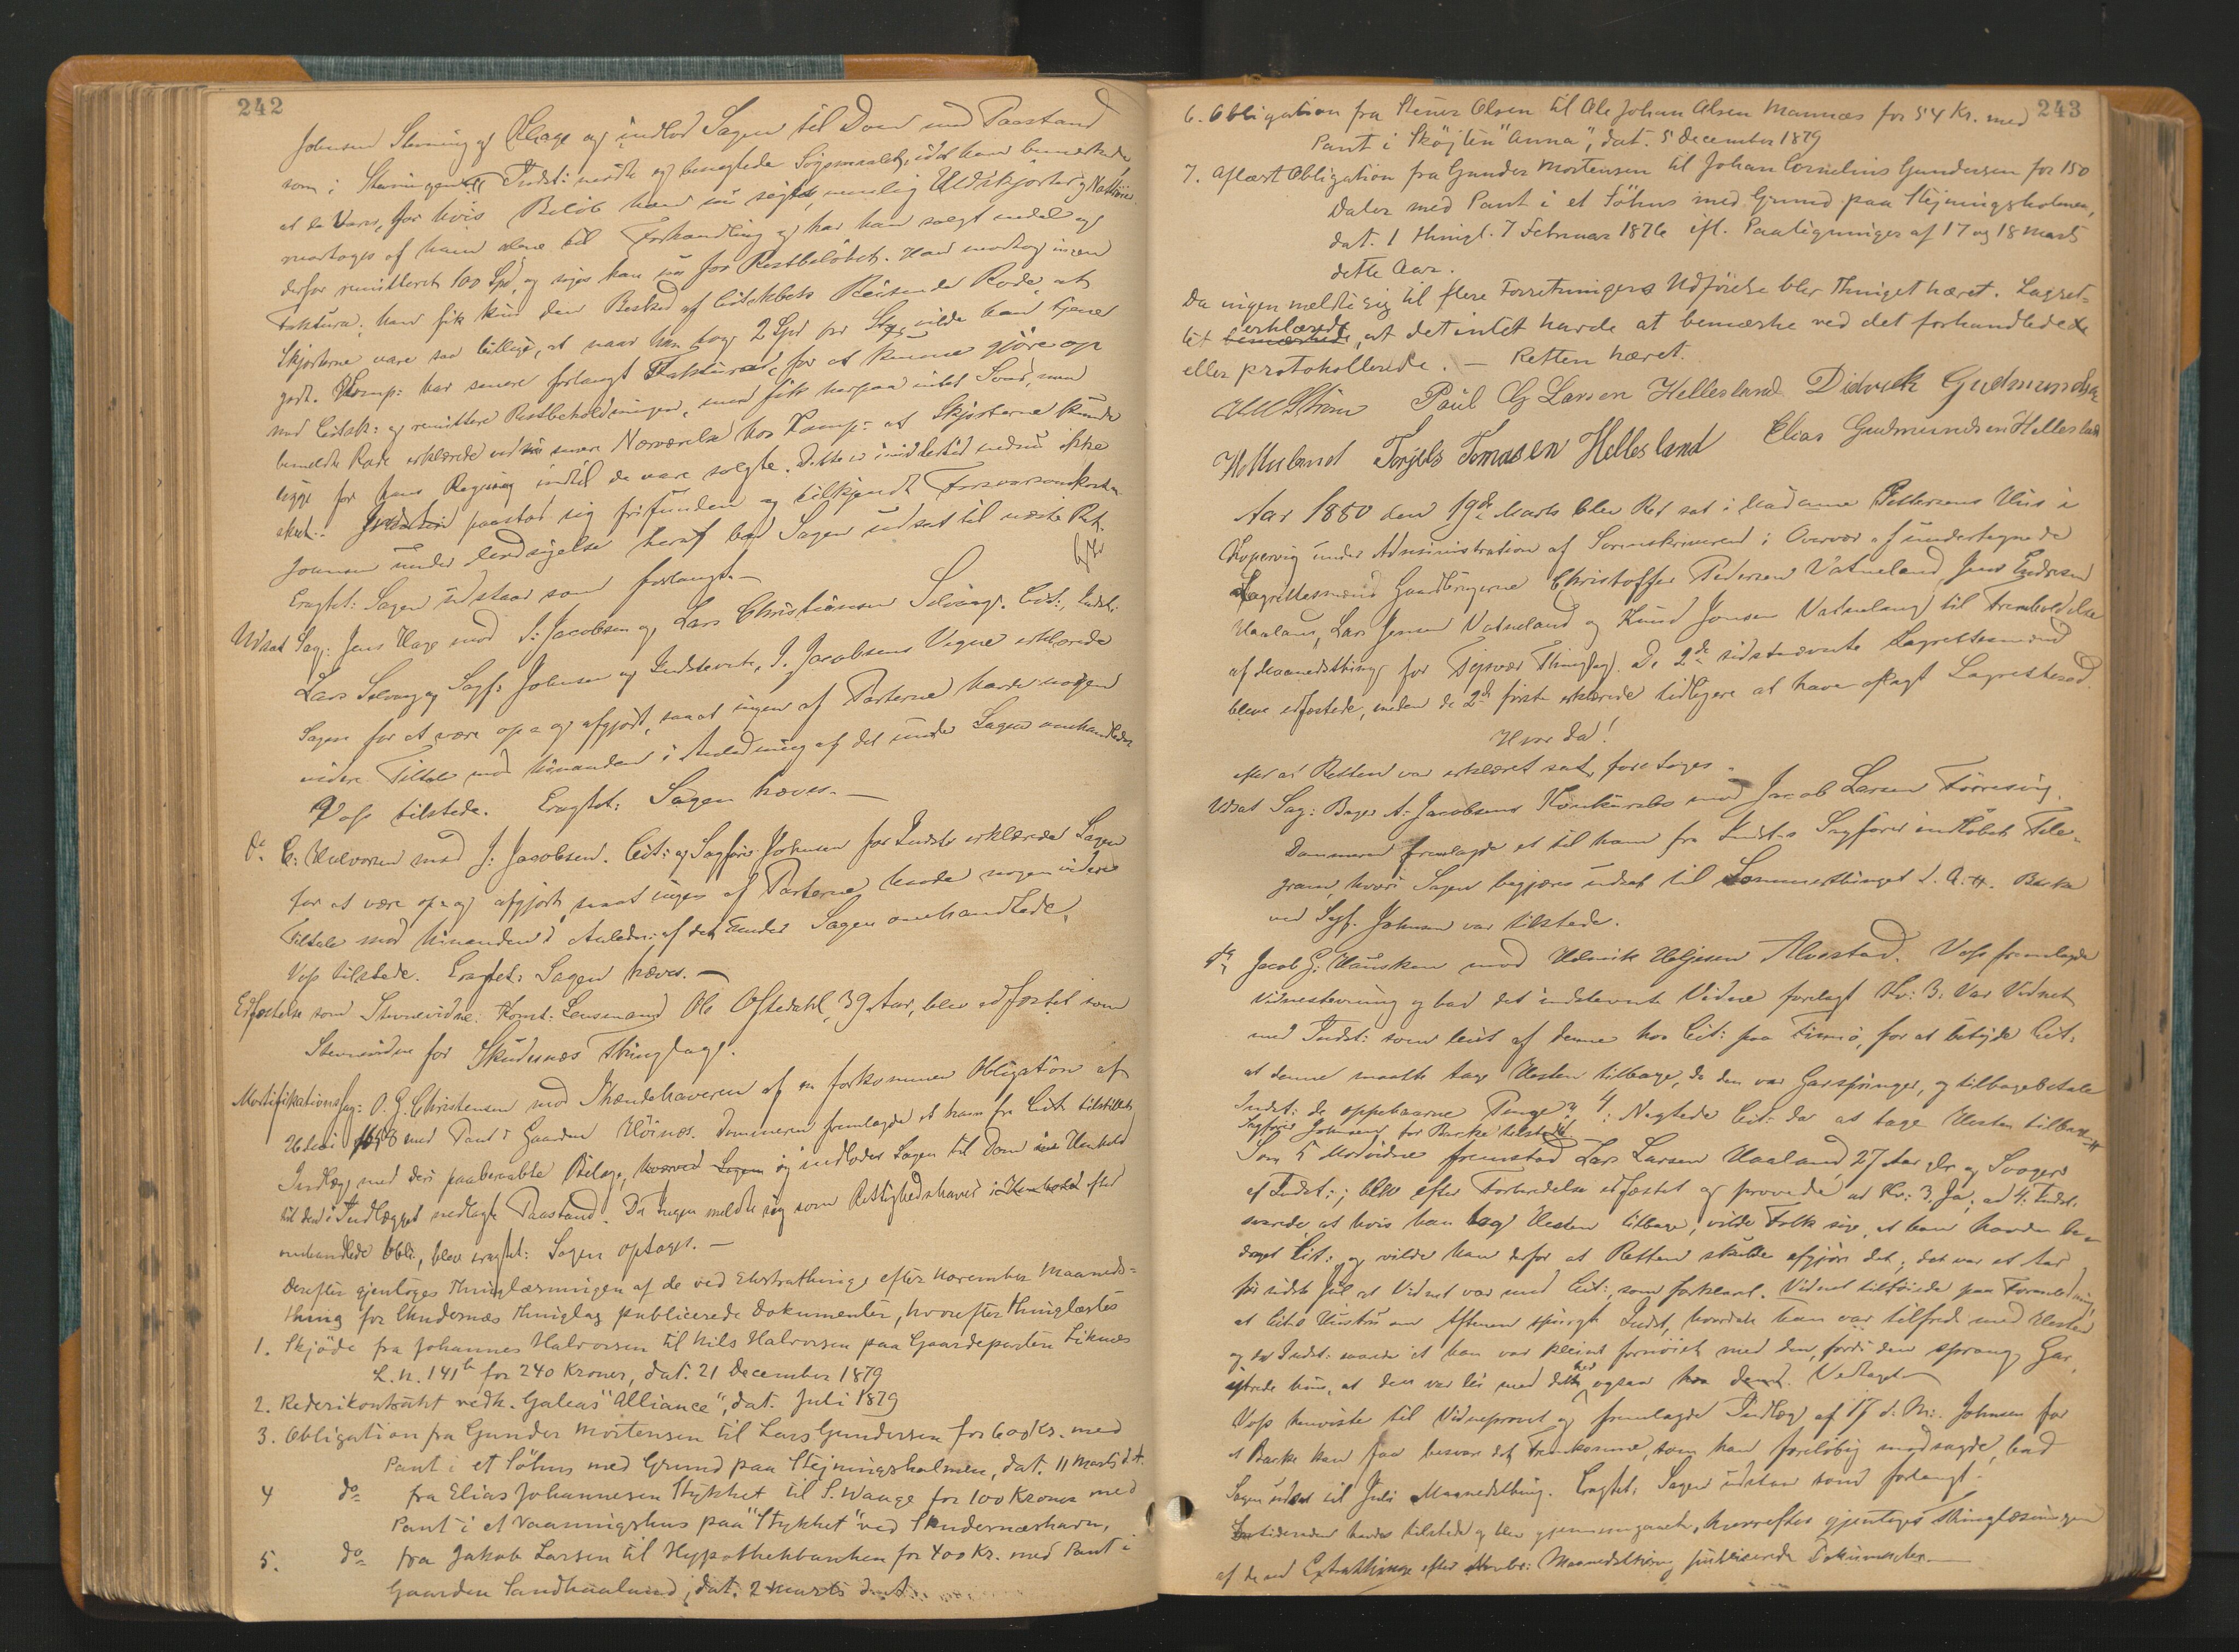 242
Johnsen Stevning og Klage og indlod Sagen til Dom med Paastand
som i Stevningen. Indst: mødte og benegtede Søgsmaalet, idet han bemærkede
at de Varer, for hvis Beløb han nu søges, nemlig Uldskjorter og
modtoges af ham alene til Forhandling og har han solgt endel og
derfor remitteret 100 Spd, og søges han nu for Restbeløbet. Han modtog ingen
Faktura; han fik kun den Besked af Citselskabets Reisende Rode, at
Skjorterne vare saa billige, at naar han tog 2 Spd pr Stk, vilde han tjene
godt. Komp: har senere forlangt Fakturaer, for at kunne gjøre op
med Citsk: og remittere Restbeholdningen, men fik herpaa intet Svar, men
bemeldte Rode erklærede ved sin senere Nærværelse hos Komp: at Skjorterne kunde
ligge for hans Regning indtil de vare solgte. Dette er imidlertid endnu ikke
skeet. Indstvn paastod sig frifunden og tilkjendt Forsvarsomkostn.
Johnsen under Modsigelse heraf bad Sagen udsat til næste Ret.
Eragtet: Sagen udstaar som forlangt. —
Udsat Sag: Jens Hage mod I. Jacobsen og Lars Christiansen Solvang. Cit:, Indst:
Lars Solvang og Sagf: Johnsen og Indstevnte, I. Jacobsens Vegne erklærede
Sagen for at være op- og afgjort, saaat ingen af Parterne havde nogen
videre Tiltale mod hinanden i Anledning af det under Sagen omhandlede.
Voss tilstede. Eragtet: Sagen hæves. —
do. C. Halvorsen mod J: Jacobsen. Cit: og Sagfører Johnsen for Indst: erklærede Sagen
for at være op- og afgjort, saaat ingen af Parterne havde nogen videre
Tiltale mod hinanden i Anledn: af det under Sagen omhandlede.
Voss tilstede. Eragtet: Sagen hæves. —
Edfæstelse som Stevnevidne. Konst: Lensmand Ole Oftedahl, 39 Aar, blev edfæstet som
Stevnevidne for Skudesnæs Thinglag.
Mortifikationssag: O. G. Christensen mod Ihændehaveren af en forkommen Obligation af
1858 med Pant i Gaarden Høinæs. Dommeren fremlagde et ham fra Cit: tilstillet
Indlæg, med deri paaberaabte Bilage, hvorved Sagen og indlodes Sagen til Dom i Henhold
til den i Indlægget nedlagte Paastand. Da Ingen meldte sig som Rettighedshaver i Henhold efter
omhandlede Obli:, blev eragtet: Sagen optages. —
Derefter gjentoges Thinglæsningen af de ved Ekstrathinge efter November Maaneds-
thing for Skudesnæs Thinglag publicerede Dokumenter, hvorefter thinglæstes
1. Skjøde fra Johannes Halvorsen til Nils Halvorsen paa Gaardeparten Liknæs
L. N. 141b for 240 Kroner, dat. 21 December 1879
2. Rederikontrakt vedk. Galeas "Alliance", dat. Juli 1879
3. Obligation fra Gunder Mortensen til Lars Gundersen for 600 Kr. med
Pant i et Søhus med Grund paa Stejningsholmen, dat. 11 Marts d. A.
4 do fra Elias Johannesen Stykket til S. Wange for 100 Kroner med
Pant i et Vaaningshus paa "Stykket" ved Skudesnæshavn,
5. do fra Jakob Larsen til Hypothekbanken for 400 Kr. med Pant i
Gaarden Sandhaaland, dat. 2 Marts d. A.
243
6. Obligation fra Stener Olsen til Ole Johan Olsen Mannæs for 54 Kr. med
Pant i Skøjten "Anna", dat. 5 December 1879
7. Aflæst Obligation fra Gunder Mortensen til Johan Cornelius Gundersen for 150
Daler med Pant i et Søhus med Grund paa Stejningsholmen,
dat. 1 thingl. 7 Februar 1876 ifl. Paategninger af 17 og 18 Marts
dette Aar.
Da ingen meldte sig til flere Forretningers Udførelse blev Thinget hævet. Lagret-
tet bemærkede erklærede, at det intet havde at bemærke ved det forhandlede
eller protokollerede. — Retten hævet.
Strøm Poul G Larsen Hellesland Didrik Gudmundsen
Hellesland Torjels Tomasen Hellesland Elias Gudmundsen Hellesland
Aar 1880 den 19de Marts blev Ret sat i Madame Pettersens Hus i
Kopervig under Administration af Sorenskriveren i Overvær af undertegnede
Lagrettesmænd Gaardbrugerne Christoffer Pedersen Vatneland, Jens Endresen
Haaland, Lars Jensen Vatneland og Knud Jonsen Vatneland til Afholdelse
af Maanedsthing for Fejsvær Thinglag. De 2de sidstnævnte Lagrettesmænd
bleve edfæstede, medens de 2de første erklærede tidligere at have aflagt Lagretteed.
Hvor da!
efter at Retten var erklæret sat, foretoges.
Udsat Sag: Bager A. Jacobsens Konkursbo mod Jacob Larsen Førresvig.
Dommeren fremlagde et til ham fra Indst:s Sagfører indløbet Tele-
gram, hvori Sagen begjæres udsat til Sommerthinget d. A.
ved Sagf. Johnsen var tilstede.
do Jacob G. Hausken mod Helmik Heljesen Alvestad. Voss fremlagde
Vidnestevning og bad det indstevnte Vidne forelagt Kv: 3: Var Vidnet
med Indst: som leiet af denne hos Cit: paa Finnø, for at betyde Cit.
at denne maatte tage Hesten tilbage, da den var Garspringer, og tilbagebetale
Indst: de oppebaarne Penge? 4: Negtede Cit: da at tage Hesten tilbage
Sagfører Johnsen for Bache tilstede
Som 5 Modvidne fremstod Lars Larsen Haaland 27 Aar glr og Svoger
af Indst:; blev efter Forberedelse edfæstet og provede ad Kv: 3: Ja; ad 4: Indst.
svarede at hvis han tog Hesten tilbage, vilde Folk sige, at han havde be-
draget Cit:, og vilde han derfor at Retten skulde afgjøre det; det var et Aar
før sidste Jul at Vidnet var med Cit:, som forklaret. Vidnet tilføiede paa Foranledning,
at Cits Hustru om Aftenen spurgte Indst, hvordan han var tilfreds med Hesten
og da Indst: svarede at han var kleint fornøiet med den, fordi den sprang Gar,
ytrede hun, at den var lei med dette ogsaa hos dem. Vedtaget
Voss henviste til Vidneprovet og fremlagde Indlæg af 17 d. M. Johnsen for
at Bache kan faa besvaret det Fremkomne, som han foreløbig modsagde, bad
Sagen udsat til Juli Maanedsthing. Eragtet: Sagen udstaar som forlangt.
havdes tilstede og blev gjennemgaaet, hvorefter gjentoges Thinglæsningen
af de ved Extrathinge efter Novbr: Maanedsthing publicerede Dokumenter. —